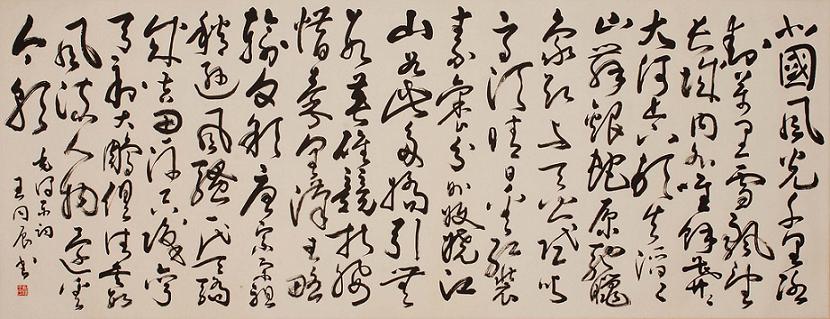 北國風光千里冰
封萬里雪飄望
長城內外唯餘莽々
大河上下頓失滔々
山舞銀蛇原馳蠟
象欲与天公試比
高須晴日看紅裝
素裹分外妖嬈江
山如此多嬌引無
數英雄競折腰
惜秦皇漢武略
輸文彩唐宗宋祖
稍遜風騷一代天驕
成吉思汗只識彎
弓射大鵰俱往矣數
風流人物還看
今朝
毛澤東詞
王同辰書